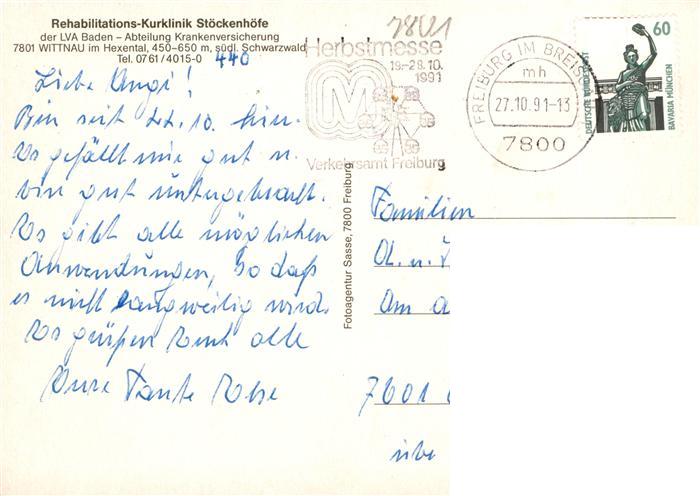 Rehabilitations-Kurklinik Stöckenhöfe
der LVA Baden – Abteilung Krankenversicherung
7801 WITTNAU im Hexental, 450–650 m, südl. Schwarzwald
Tel. 0761/4015-0
440
7801
Herbstmesse
19.–28.10.
1991
M
Verkehrsamt Freiburg
FREIBURG IM BREIS
mh
27.10.91-13
7800
60
DEUTSCHE BUNDESPOST
BAVARIA MÜNCHEN
Liebe Angi!
Bin seit 22. 10. hier.
Es gefällt mir gut u.
bin gut untergebracht.
Es gibt alle möglichen
Anwendungen, so daß
es nicht langweilig wird.
Es grüßen Euch alle
Eure Tante Rose
Fotoagentur Sasse, 7800 Freiburg
Familien
A. u.
Am
7601